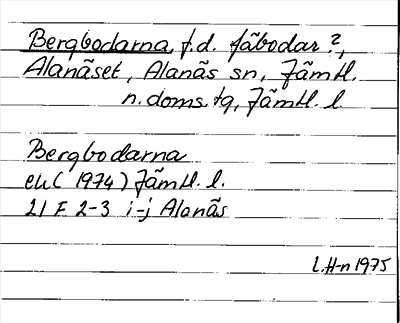 Bergbodarna, f.d. fäbodar?,
Alanäset, Alanäs sn, Jämtl.
n. doms. tg, Jämtl. l.
Bergbodarna
ek ( 1974 ) Jämtl. l.
21 F 2-3 i-j Alanäs
L.H-n 1975